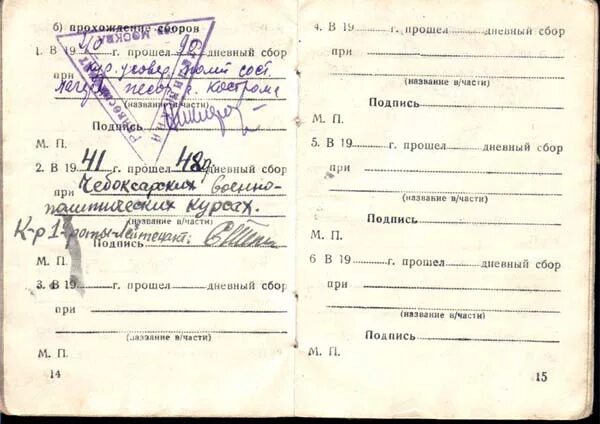 б) прохождение сборов
1. В 1940 г. прошел 90 дневный сбор
при кур. усовер. полит сост.
лагерь г. Кострома
(название в/части)
Подпись
М. П.
2. В 1941 г. прошел 48 дневный сбор
при Чебоксарских военно-
политических курсах.
(название в/части)
К-р 1-роты-лейтенант:
Подпись
М. П.
3. В 19 г. прошел дневный сбор
при
(название в/части)
Подпись
М. П.
14
4. В 19 г. прошел дневный сбор
при
(название в/части)
Подпись
М. П.
5. В 19 г. прошел дневный сбор
при
(название в/части)
Подпись
М. П.
6 В 19 г. прошел дневный сбор
при
(название в/части)
Подпись
М. П.
15
МОСКВА